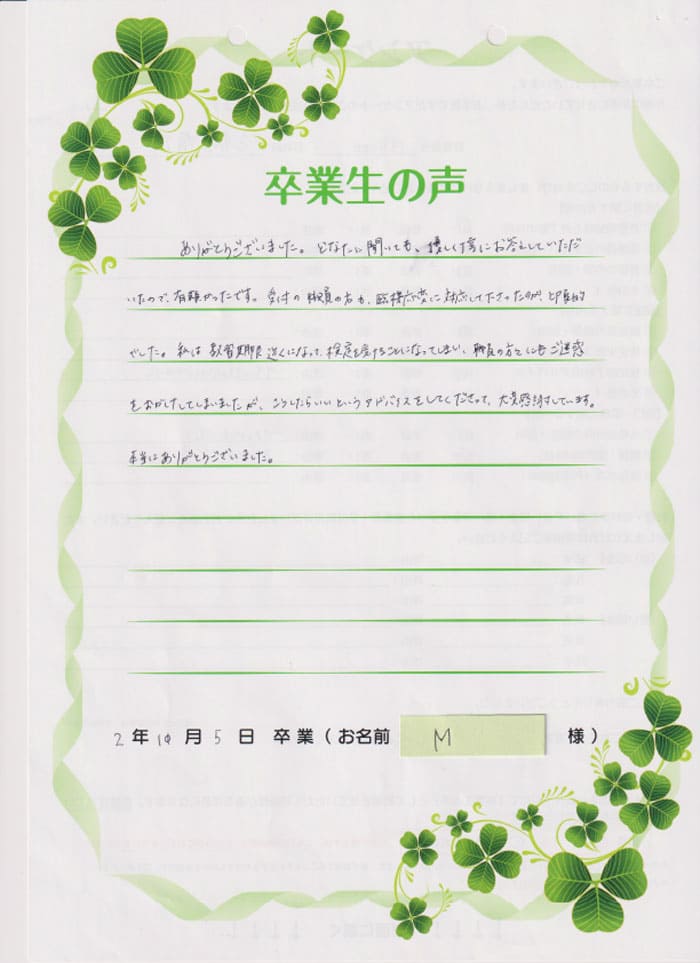 卒業生の声
ありがとうございました。どなたに聞いても、優しく丁寧にお答えしていただ
いたので、有難かったです。受付の職員の方も、臨機応変に対応して下さったのが、印象的
でした。私は教習期限近くになって、検定を受けることになってしまい、職員の方々にもご迷惑
をおかけしてしまいましたが、こうしたらいいというアドバイスをしてくださって、大変感謝しています。
本当にありがとうございました。
2年10月5日 卒業（お名前 M 様）